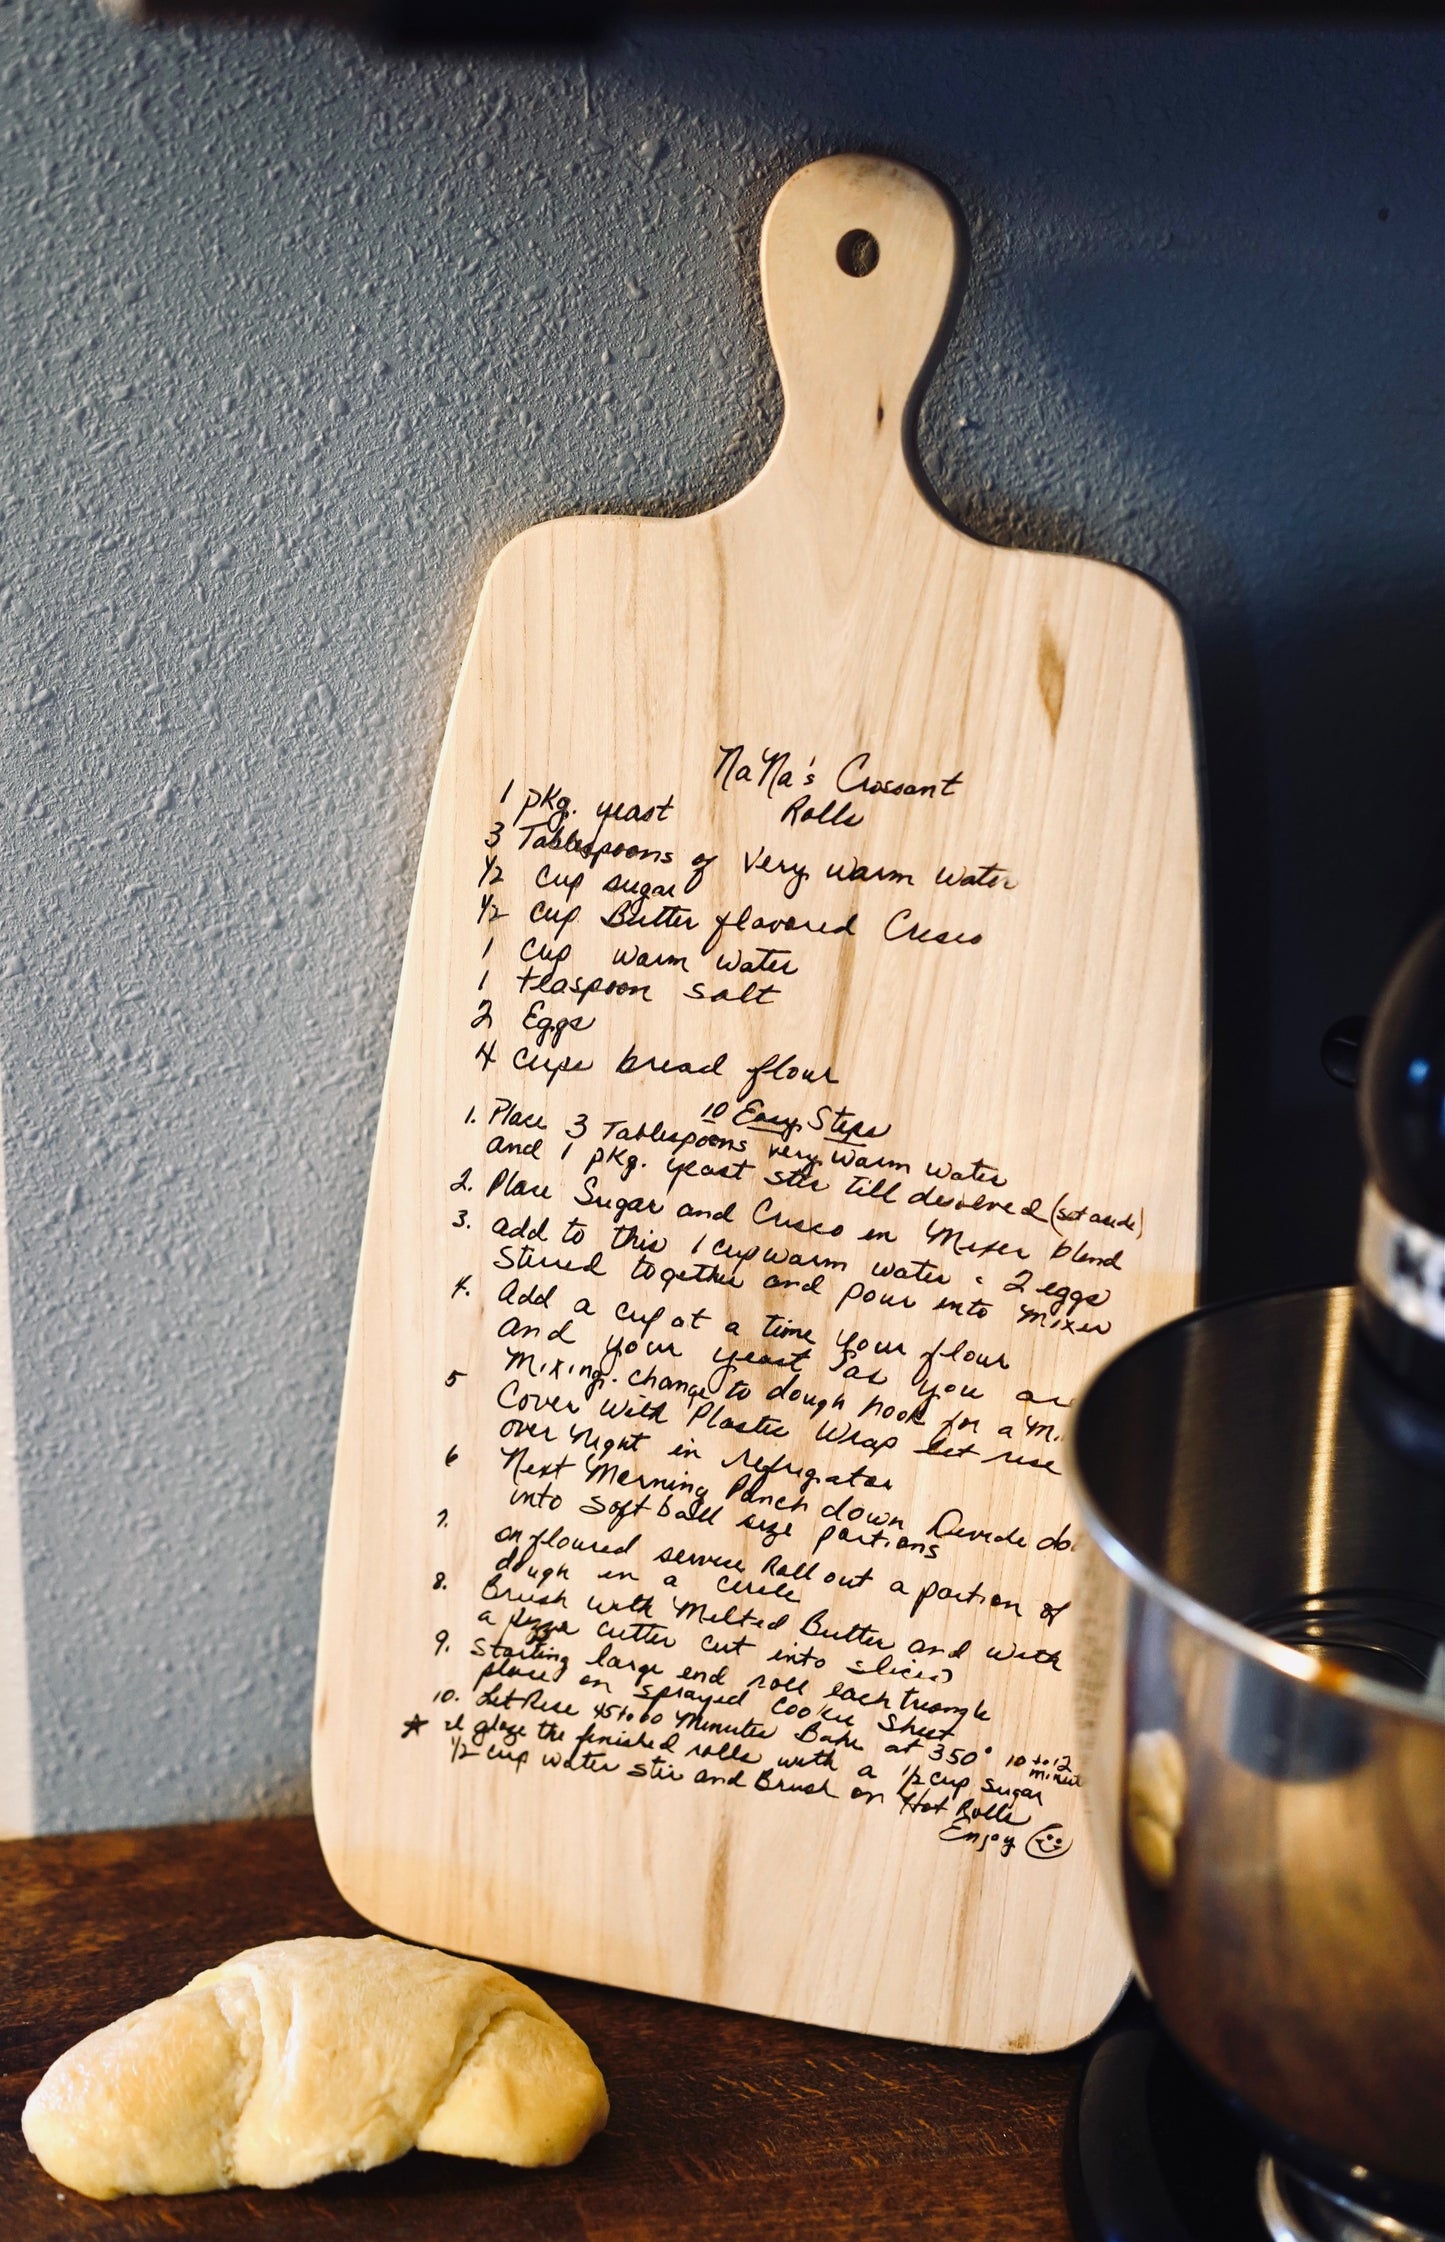 NaNa's Crossant
Rolls
1 pkg. yeast
3 Tablespoons of Very warm water
1/2 cup sugar
1/2 cup Butter flavored Crisco
1 cup warm water
1 teaspoon salt
2 Eggs
4 cups bread flour
10 Easy Steps
1. Place 3 Tablespoons very warm water
and 1 pkg. yeast stir till desolved (set aside)
2. Place Sugar and Crisco in Mixer blend
3. add to this 1 cup warm water 2 eggs
Stirred together and pour into mixer
4. Add a cup at a time your flour
and your yeast as you
Mixing. change to dough hook for a
5 Cover with Plastic Wrap let rise
over Night in refrigiator
6 Next Morning Punch down Devide
into soft ball size portions
7. on floured service Roll out a portion of
dough in a circle
8. Brush with Melted Butter and with
a pizza cutter cut into slices
9. Starting large end roll each triangle
place on sprayed Cookie Sheet
10. Let Rise 45 to 60 Minutes Bake at 350° 10 to 12
★ glaze the finished rolls with a 1/2 cup sugar
1/2 cup water stir and Brush on Hot Rolls
Enjoy